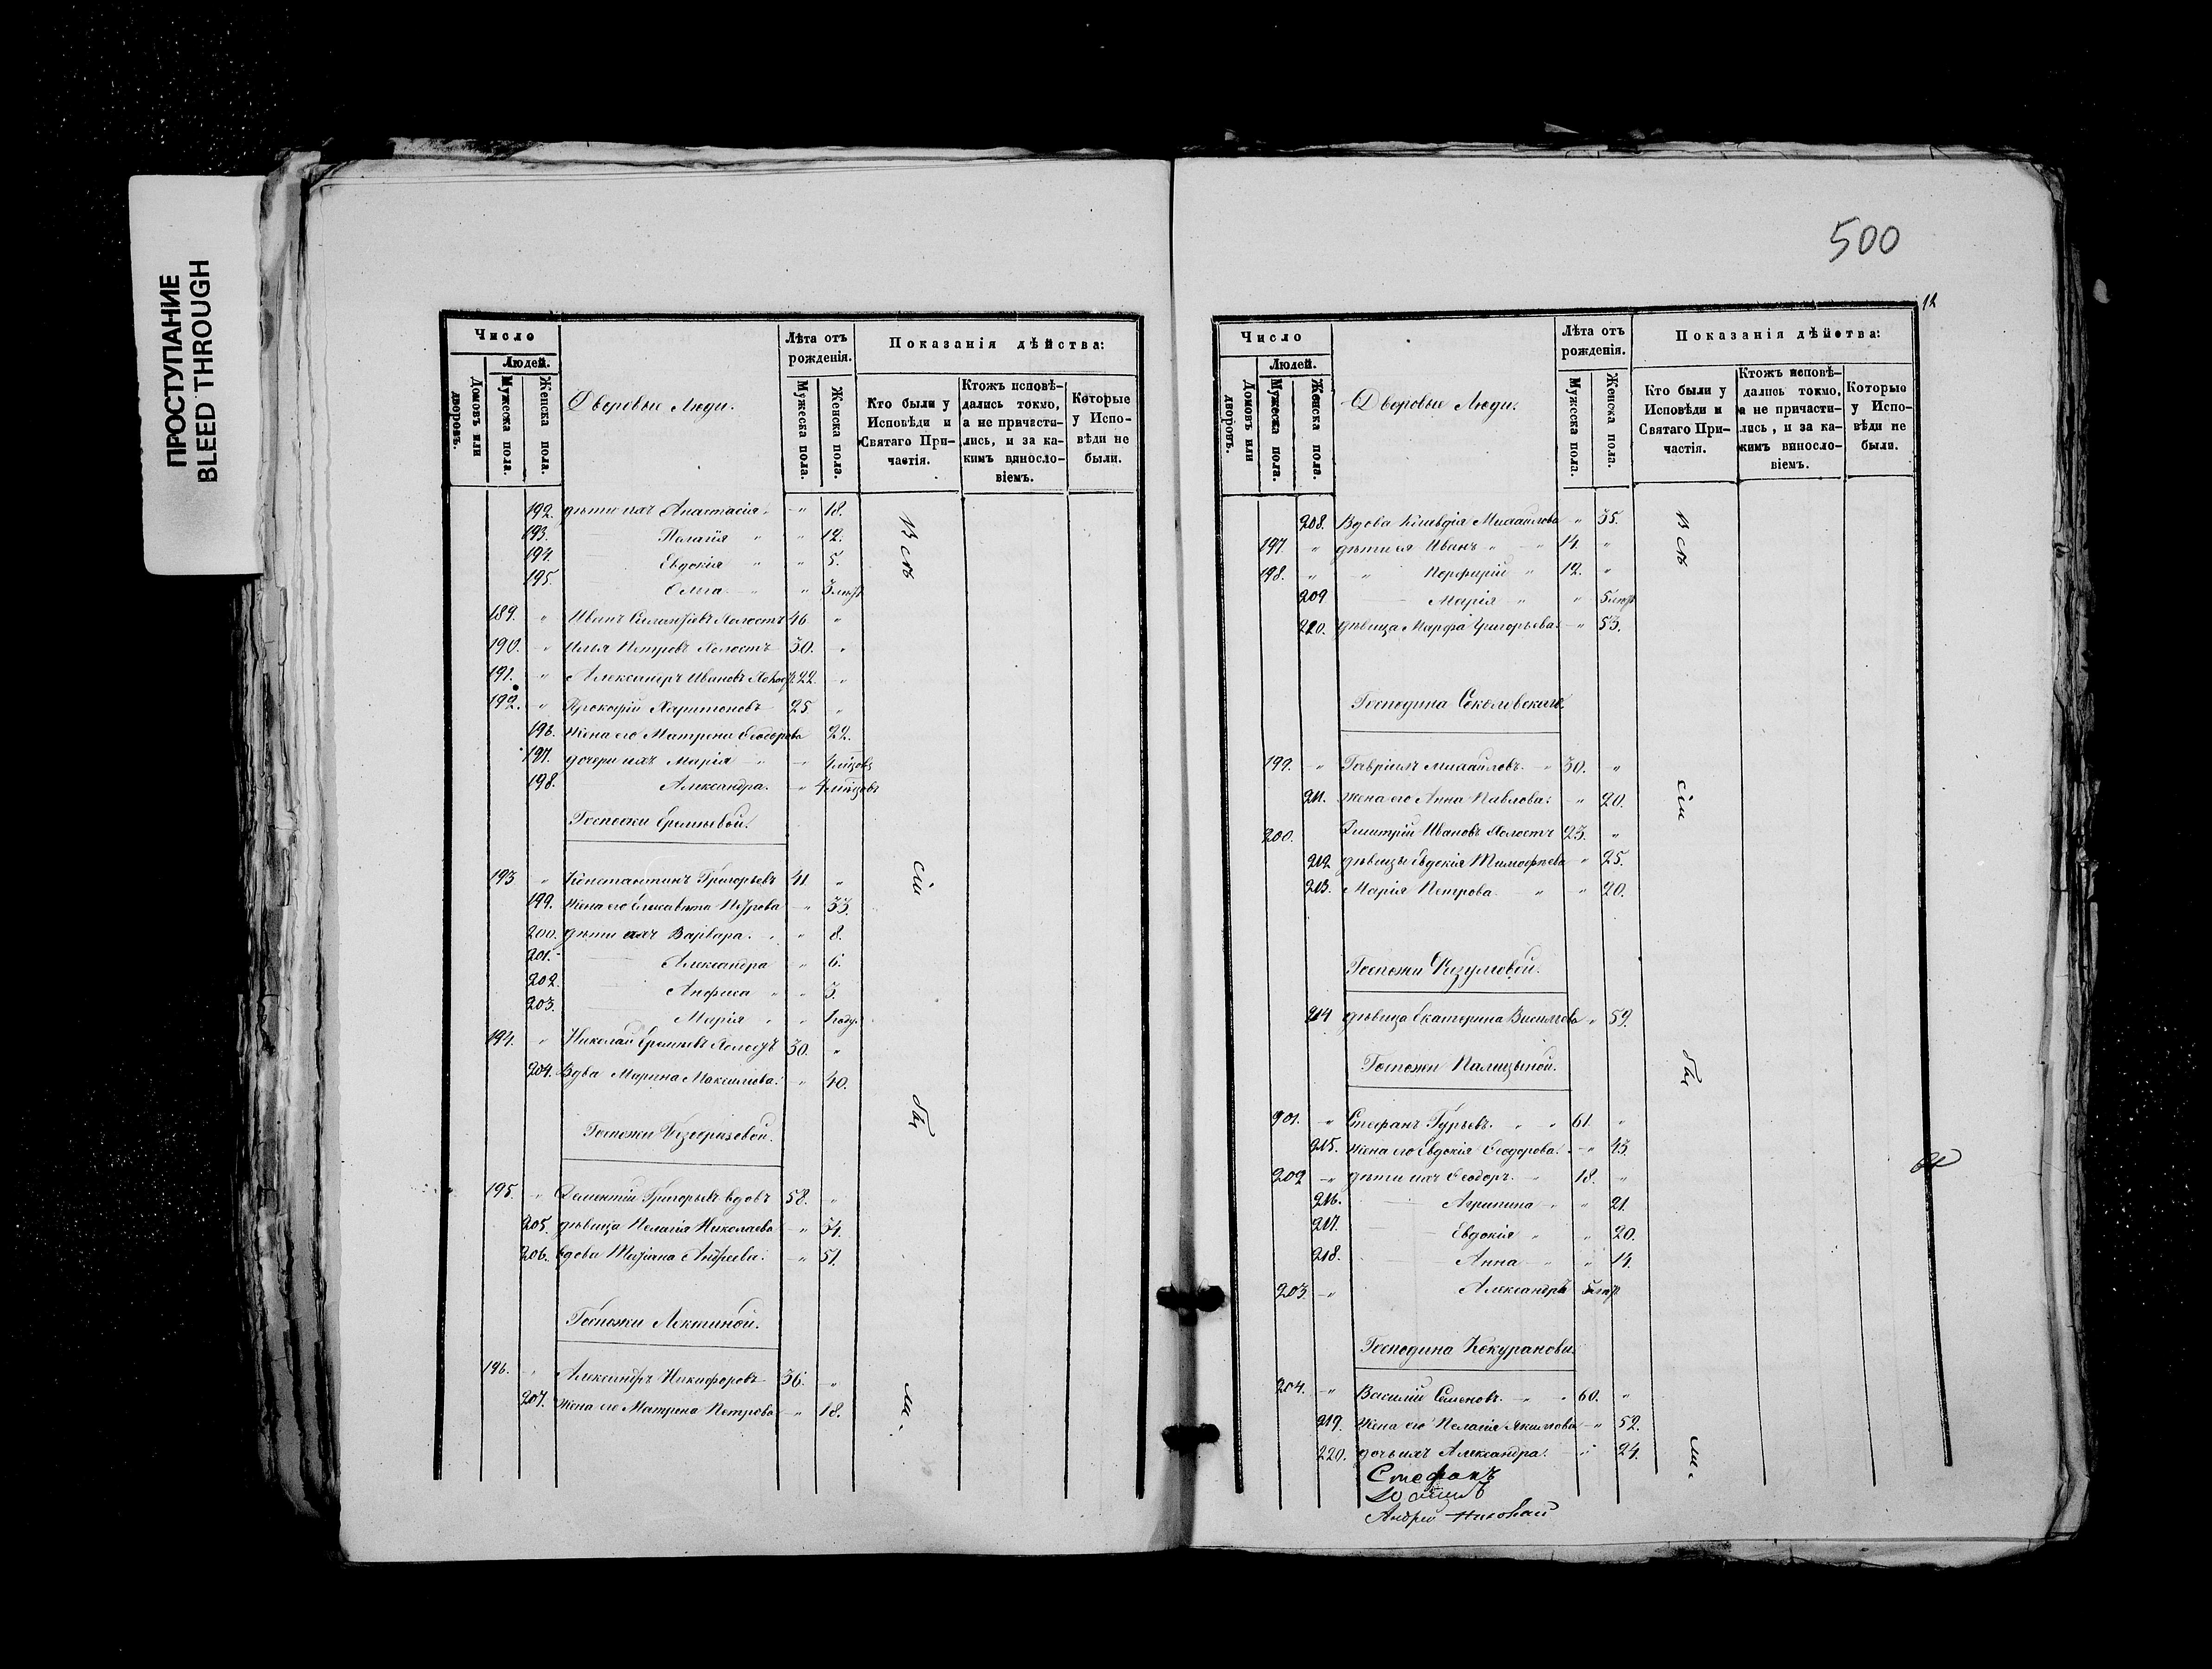 ПРОСТУПАНИЕ
BLEED THROUGH
500
12
Число
Людей.
Домовъ или дворовъ.
Мужеска пола.
Женска пола.
Дворовые Люди.
Лѣта отъ рожденія.
Мужеска пола.
Женска пола.
Показанія дѣйства:
Кто были у Исповѣди и Святаго Причастія.
Ктожъ исповѣдались токмо, а не причастились, и за какимъ винословіемъ.
Которые у Исповѣди не были.
192. дѣти ихъ Анастасія " 18.
193. Пелагія " " 12.
194. Евдокія " " 5.
195. Ольга " " 3
189. " Иванъ Холостъ 46. "
190. " Илья Петровъ Холостъ 30. "
191. " Александръ Ивановъ 22. "
192. " Прокофій Харитоновъ 25 "
196. жена его Матрена Ѳеодорова 22.
197. дочери ихъ Марія " "
198. Александра. "
193 " Константинъ Григорьевъ 41 "
199. жена его Елисавета Петрова " 33.
200. дѣти ихъ Варвара. " " 8.
201. Александра " 6.
202. Анфиса " " 3.
203. Марія " " 1 году.
194. " Николай Холостъ 30. "
204. Вдва Марина Максимова. " 40.
Госпожи Безобразовой.
195. " Дементій Григорьевъ вдовъ 58. "
205. дѣвица Пелагія Николаева " 54.
206. вдова Татіана Андреева. " 51.
Госпожи Лектиной.
196. " Александръ Никифоровъ 36. "
207. жена его Матрена Петрова " 18.
Всѣ
сіи
ли.
Число
Людей.
Домовъ или дворовъ.
Мужеска пола.
Женска пола.
Дворовые Люди.
Лѣта отъ рожденія.
Мужеска пола.
Женска пола.
Показанія дѣйства:
Кто были у Исповѣди и Святаго Причастія.
Ктожъ исповѣдались токмо, а не причастились, и за какимъ винословіемъ.
Которые у Исповѣди не были.
208. Вдова Клавдія Михайлова " 35.
197. " дѣти ея Иванъ " " 14. "
198. " " Порфирій " 12. "
209 Марія " " 5
210. дѣвица Марфа Григорьева. " 53.
Господина Соколовскаго.
199. " Гавріилъ Михайловъ. " 30. "
211. жена его Анна Павлова. " 20.
200. Димитрій Ивановъ Холостъ 23. "
212 дѣвицы Евдокія Тимофѣева " 25.
213. Марія Петрова. " " 20.
214 дѣвица Екатерина Васильева " 59.
Госпожи Палицыной.
201. " Стефанъ Гурьевъ. " " 61. "
215. жена его Евдокія Ѳеодорова. " 43.
202 " дѣти ихъ Ѳеодоръ. 18. "
216. Агрипина " " 21.
217. Евдокія " " 20.
218. Анна " " 14.
203. " Александръ 5
Господина Кокуранова.
204. " Василій Семеновъ. " " 60. "
219. жена его Пелагія Якимова " 52.
220. дочь ихъ Александра. " 24.
Всѣ
сіи
ли.
Стефанъ
Андрей Николай